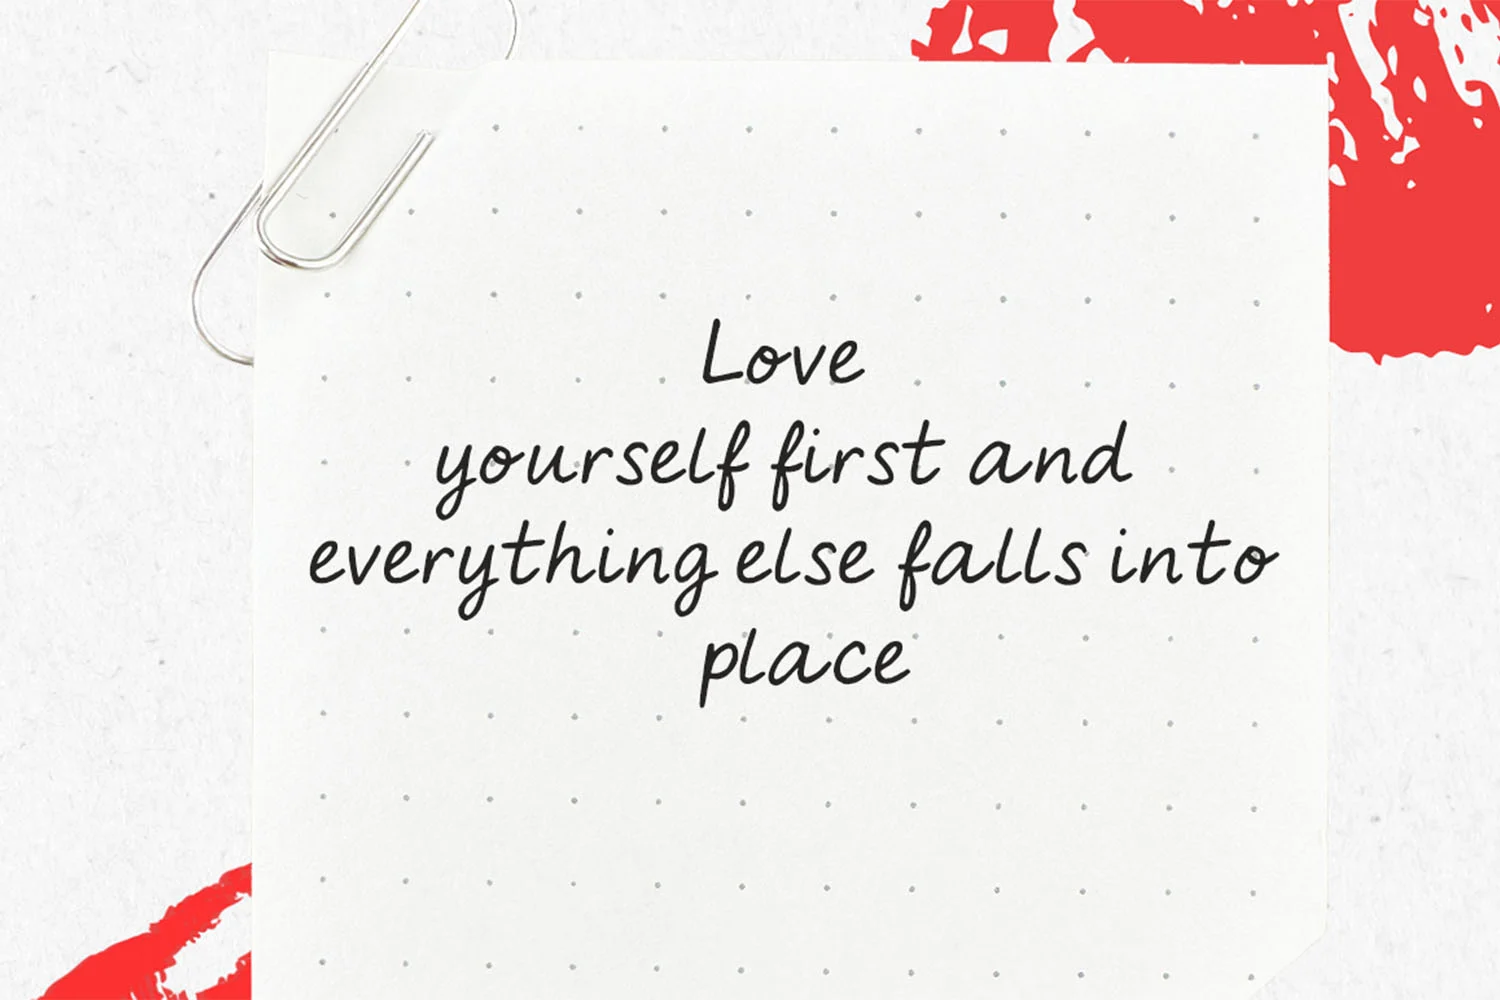 Love
yourself first and
everything else falls into
place